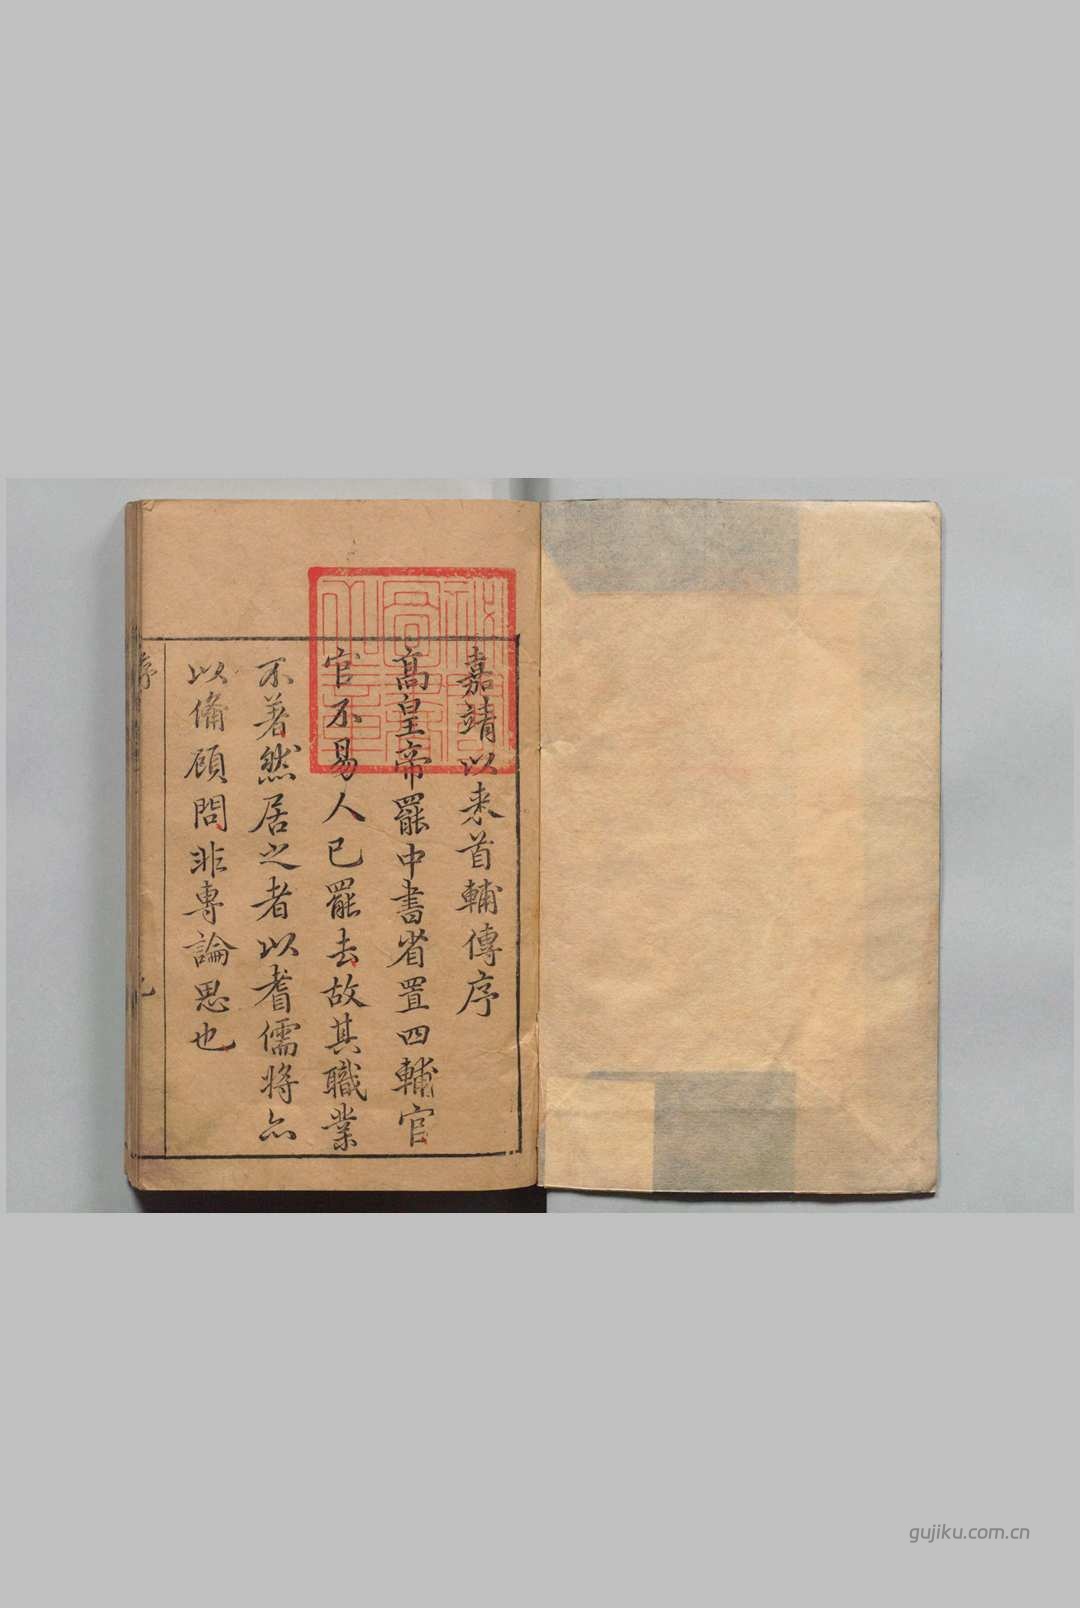 嘉靖以来首輔傳序
髙皇帝罷中書省置四輔官
官不易人已罷去故其職業
不著然居之者以耆儒将亦
以俻顧問非專論思也
序
gujiku.com.cn